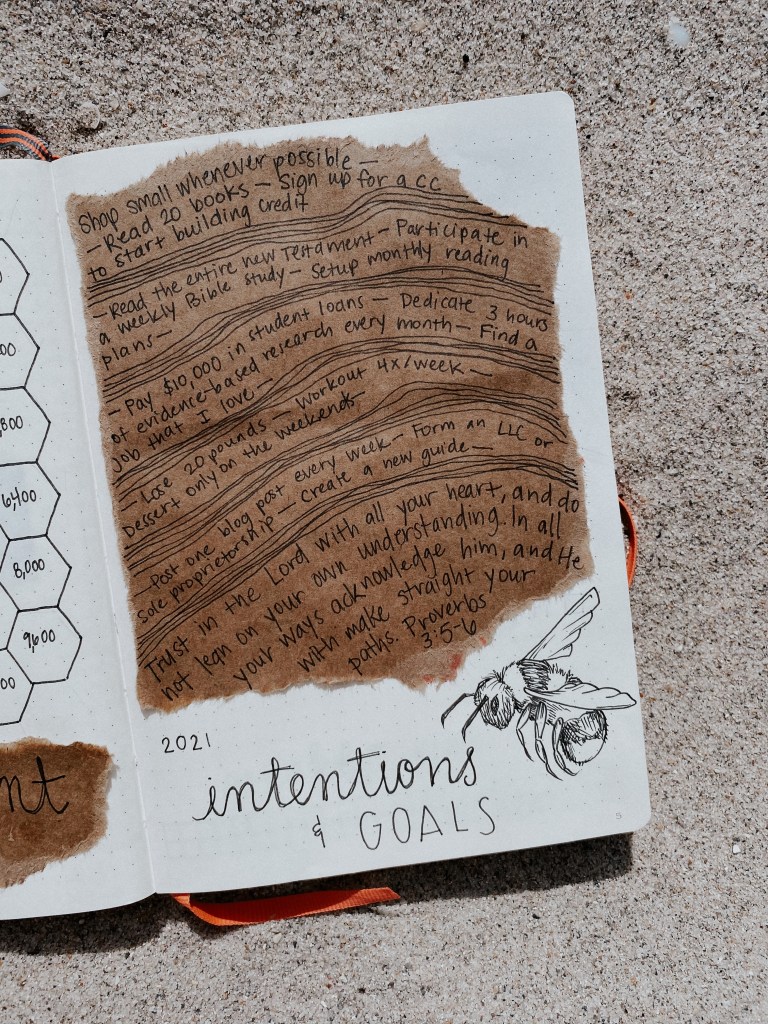 00
,800
6,400
8,000
9,600
00
nt
Shop small whenever possible —
— Read 20 books — Sign up for a CC
to start building credit
— Read the entire new Testament — Participate in
a weekly Bible study — Setup monthly reading
plans —
— Pay $10,000 in student loans — Dedicate 3 hours
of evidence-based research every month — Find a
job that I love —
— Lose 20 pounds — Workout 4x/week —
Dessert only on the weekends —
— Post one blog post every week — Form an LLC or
sole proprietorship — Create a new guide —
Trust in the Lord with all your heart, and do
not lean on your own understanding. In all
your ways acknowledge him, and He
with make straight your
paths. Proverbs
3:5-6
2021
intentions
& GOALS
5